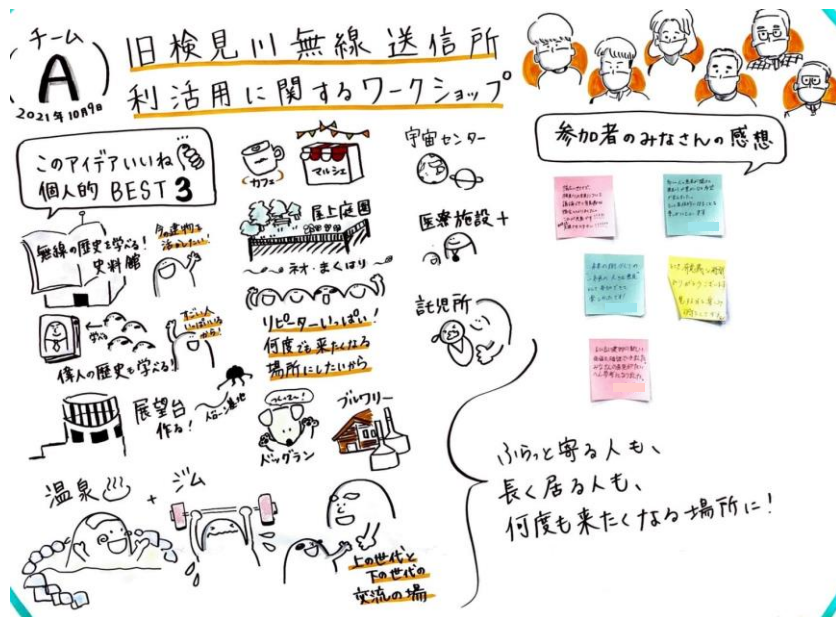 チーム
A
2021年10月9日
旧検見川無線送信所
利活用に関するワークショップ
このアイデアいいね
個人的 BEST 3
無線の歴史を学べる!
史料館
今の建物を
活かしたい!
学べる
すごい人
いっぱいいる
から!
偉人の歴史も学べる!
展望台
作る!
ドローン基地
温泉
+
ジム
カフェ
マルシェ
屋上庭園
ネオ・まくはり
リピーターいっぱい!
何度でも来たくなる
場所にしたいから
ドッグラン
ブルワリー
上の世代と
下の世代の
交流の場
宇宙センター
医療施設+
託児所
参加者のみなさんの感想
ふらっと寄る人も、
長く居る人も、
何度も来たくなる場所に!